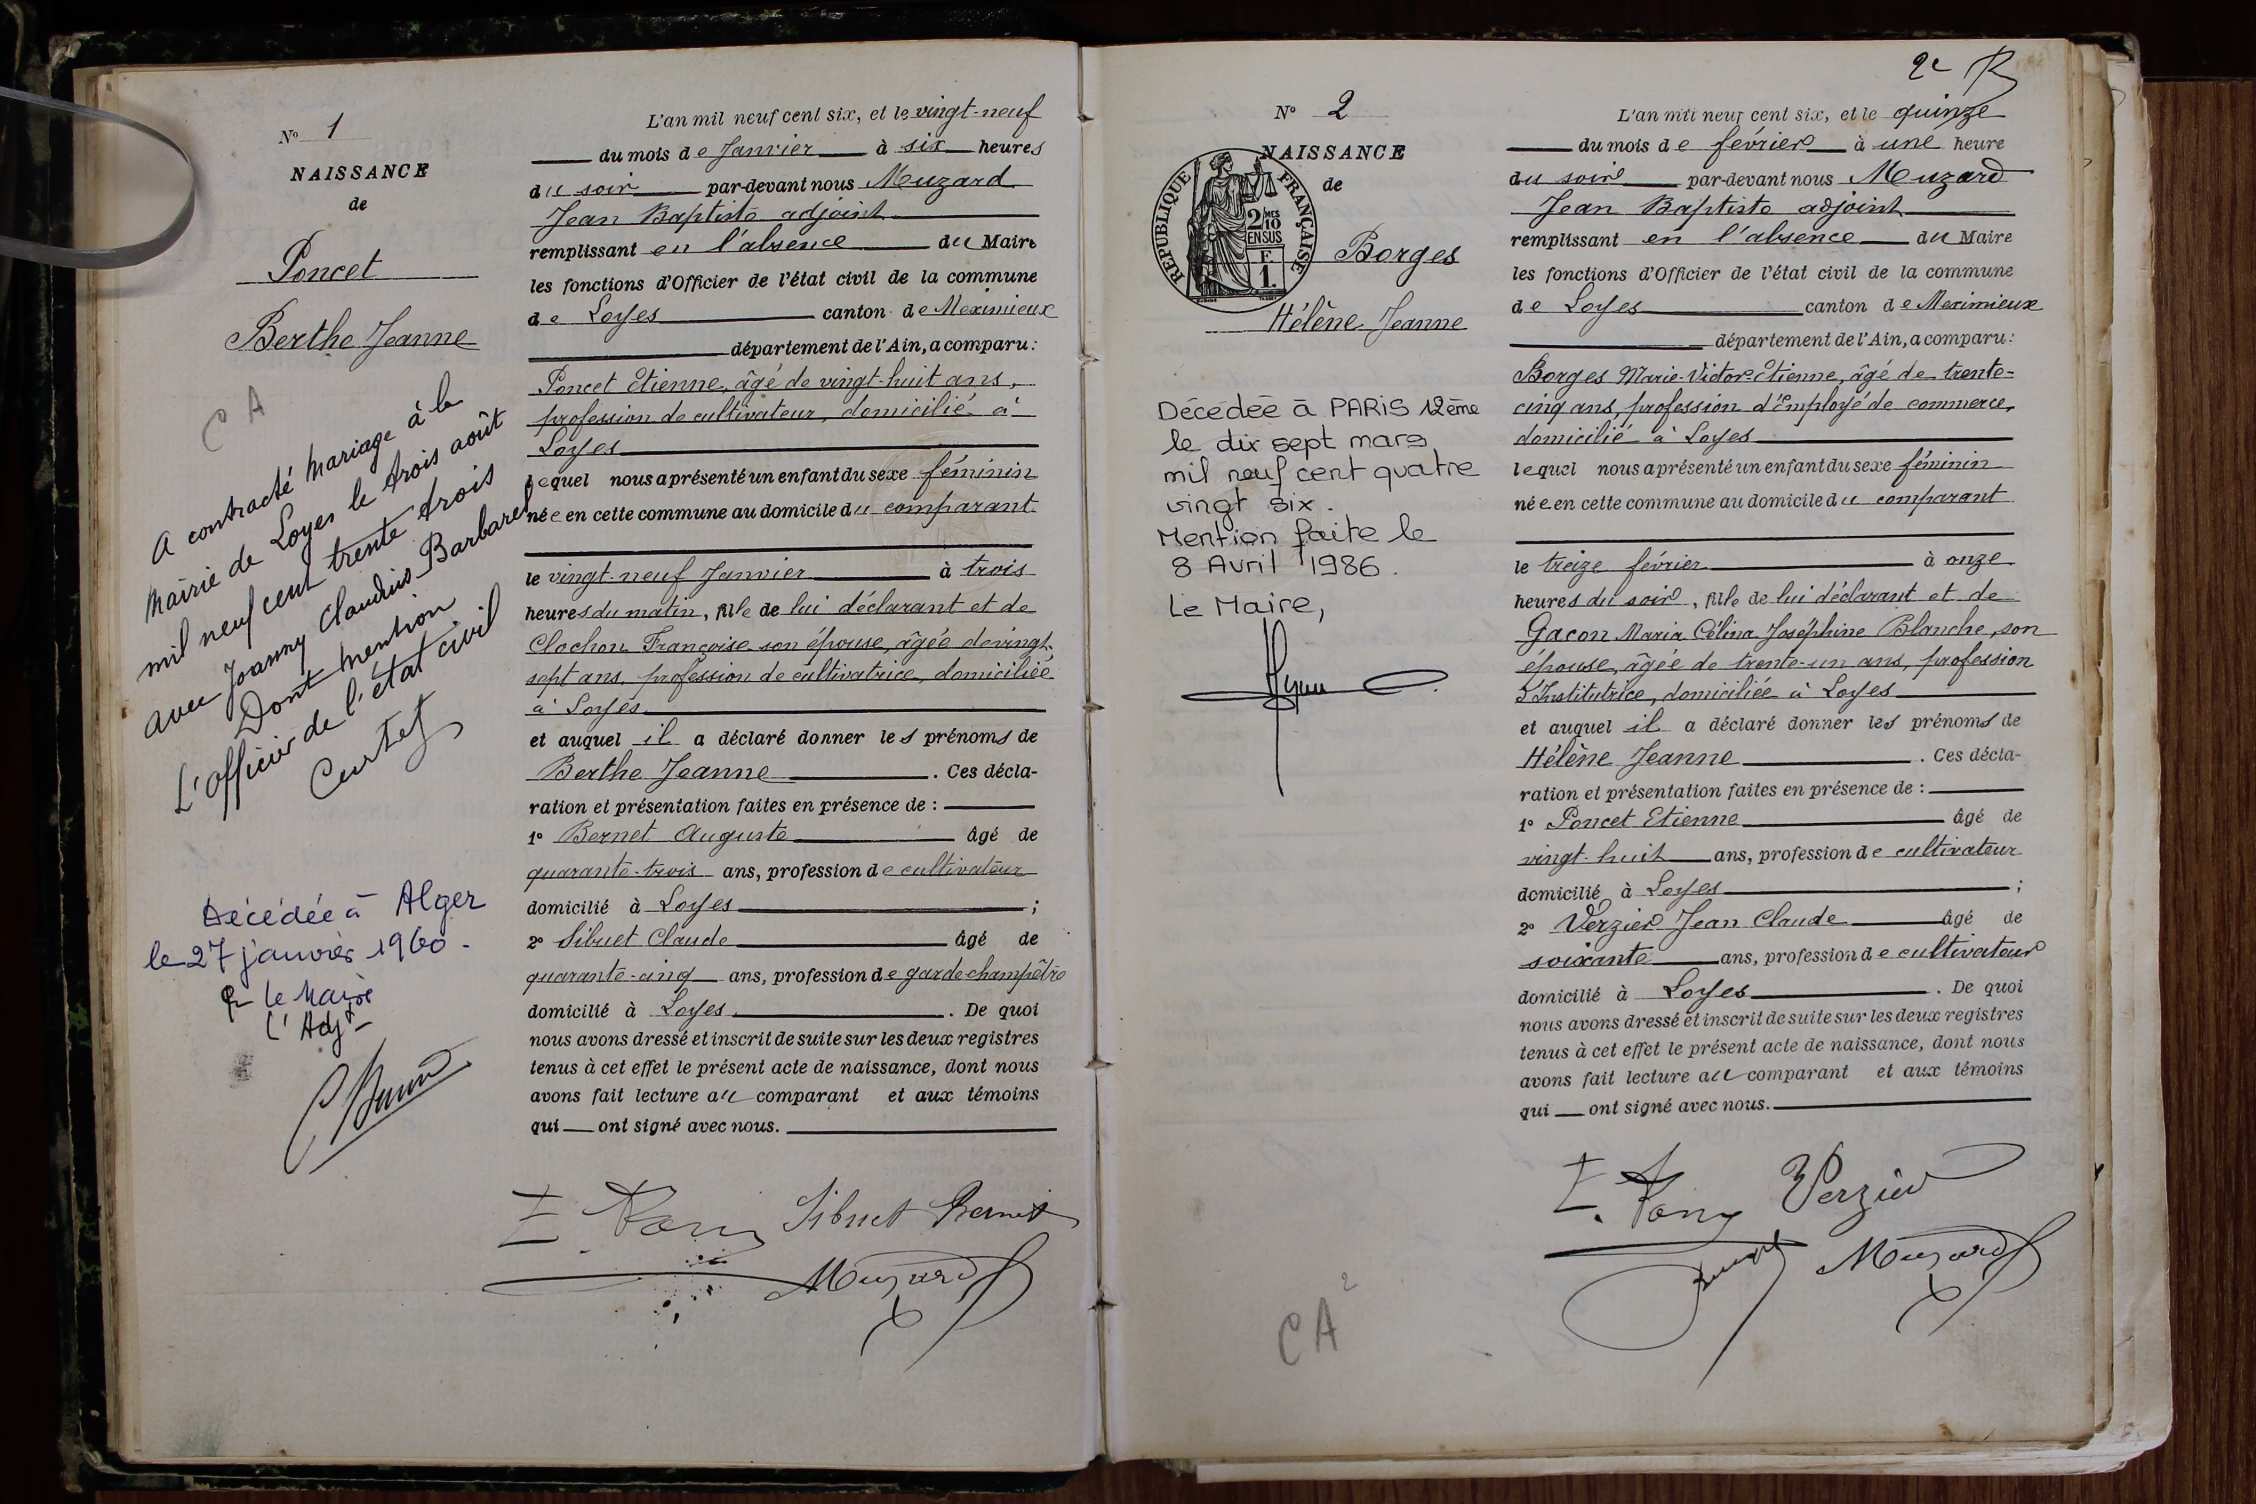 Nº 1
NAISSANCE
de
Poncet
Berthe Jeanne
CA
A contracté mariage à la
Mairie de Loyes le trois août
mil neuf cent trente trois
avec Joanny Claudius Barbaret
Dont mention
L'officier de l'état civil
Curtet
Décédée à Alger
le 27 janvier 1960.
Pr le Maire
l'Adjt
L'an mil neuf cent six, et le vingt-neuf
du mois de Janvier à six heures
du soir par-devant nous Muzard
Jean Baptiste adjoint
remplissant en l'absence du Maire
les fonctions d'Officier de l'état civil de la commune
de Loyes canton de Meximieux
département de l'Ain, a comparu :
Poncet Etienne, âgé de vingt-huit ans,
profession de cultivateur, domicilié à
Loyes
lequel nous a présenté un enfant du sexe féminin
née en cette commune au domicile du comparant.
le vingt-neuf Janvier à trois
heures du matin, fille de lui déclarant et de
Clochon Françoise son épouse, âgée de vingt-
sept ans, profession de cultivatrice, domiciliée
à Loyes
et auquel il a déclaré donner les prénoms de
Berthe Jeanne. Ces décla-
ration et présentation faites en présence de :
1º Bernet Auguste âgé de
quarante-trois ans, profession de cultivateur
domicilié à Loyes ;
2º Sibuet Claude âgé de
quarante-cinq ans, profession de garde champêtre
domicilié à Loyes. De quoi
nous avons dressé et inscrit de suite sur les deux registres
tenus à cet effet le présent acte de naissance, dont nous
avons fait lecture au comparant et aux témoins
qui ont signé avec nous.
Sibuet Bernet
Muzard
2e
Nº 2
NAISSANCE
de
RÉPUBLIQUE FRANÇAISE
2/10 MES
EN SUS
F.
1.
Borges
Hélène Jeanne
Décédée à PARIS 12ème
le dix sept mars
mil neuf cent quatre
vingt six.
Mention faite le
8 Avril 1986.
Le Maire,
CA 2
L'an mil neuf cent six, et le quinze
du mois de février à une heure
du soir par-devant nous Muzard
Jean Baptiste adjoint
remplissant en l'absence du Maire
les fonctions d'Officier de l'état civil de la commune
de Loyes canton de Meximieux
département de l'Ain, a comparu :
Borges Marie-Victor-Etienne, âgé de trente-
cinq ans, profession d'Employé de commerce,
domicilié à Loyes
lequel nous a présenté un enfant du sexe féminin
née en cette commune au domicile du comparant
le treize février à onze
heures du soir, fille de lui déclarant et de
Gacon Maria Célina Joséphine Blanche, son
épouse, âgée de trente-un ans, profession
d'Institutrice, domiciliée à Loyes
et auquel il a déclaré donner les prénoms de
Hélène Jeanne. Ces décla-
ration et présentation faites en présence de :
1º Poncet Etienne âgé de
vingt-huit ans, profession de cultivateur
domicilié à Loyes ;
2º Verzier Jean Claude âgé de
soixante ans, profession de cultivateur
domicilié à Loyes. De quoi
nous avons dressé et inscrit de suite sur les deux registres
tenus à cet effet le présent acte de naissance, dont nous
avons fait lecture au comparant et aux témoins
qui ont signé avec nous.
Verzier
Muzard